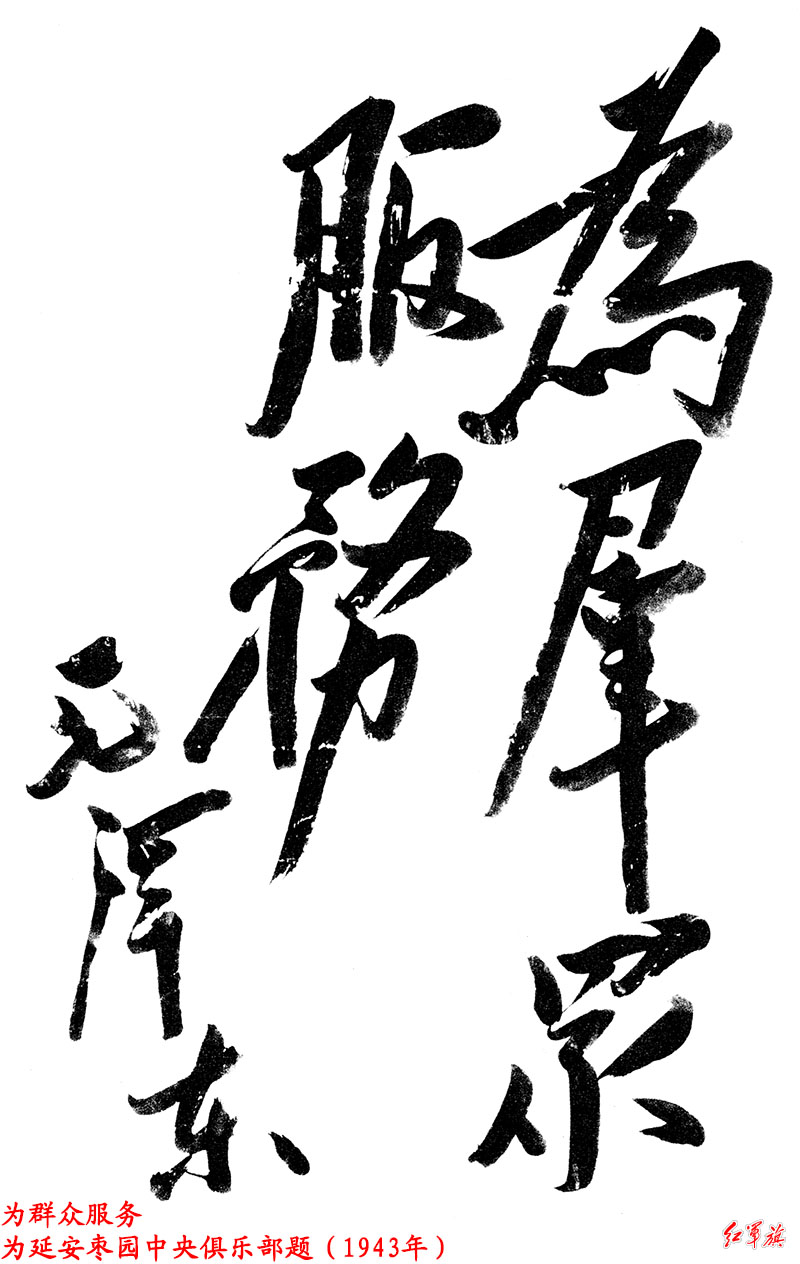 為羣眾
服務
毛澤东
为群众服务
为延安枣园中央俱乐部题（1943年）
红军旗